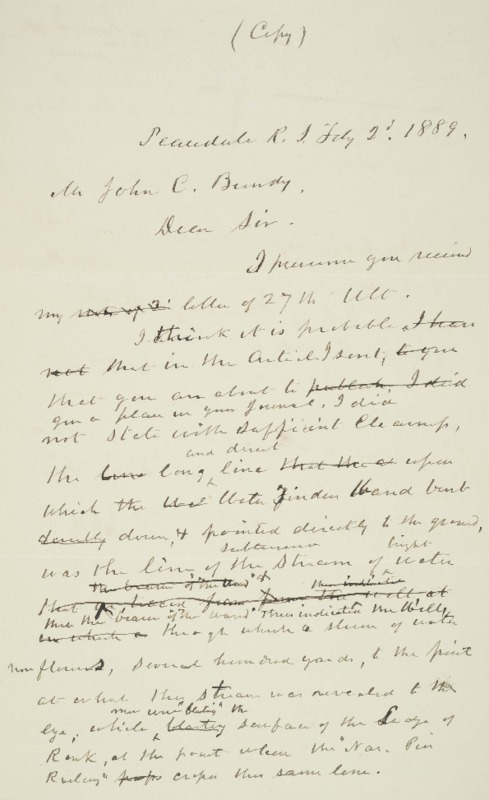 (Copy)
Peacedale R. I. Feby 2d. 1889.
Mr John C. Bundy,
Dear Sir.
I presume you received
my note of 2 letter of 27th Ult.
I think it is probable, I have
not that in the Article I sent, to you
that you are about to publish, I did
give a place in your Journal, I did
not state with sufficient clearness,
and direct
the line long line that the upon
which the Water Finder Wand bent
down, & pointed directly to the ground,
subterranean bright
was the line of the Stream of water
the bearer of "the Wand" &
then indicate
that from the well at
"the bearer of the wand" then indicated the Well,
in which a through which a stream of water
now flows, several hundred yards, to the point
at what this stream was revealed to the
men were "blasting" the
eye, while blasting surface of the Ledge of
Rock, at the point where the "Nar. Pier
Railway" crosses this same line.